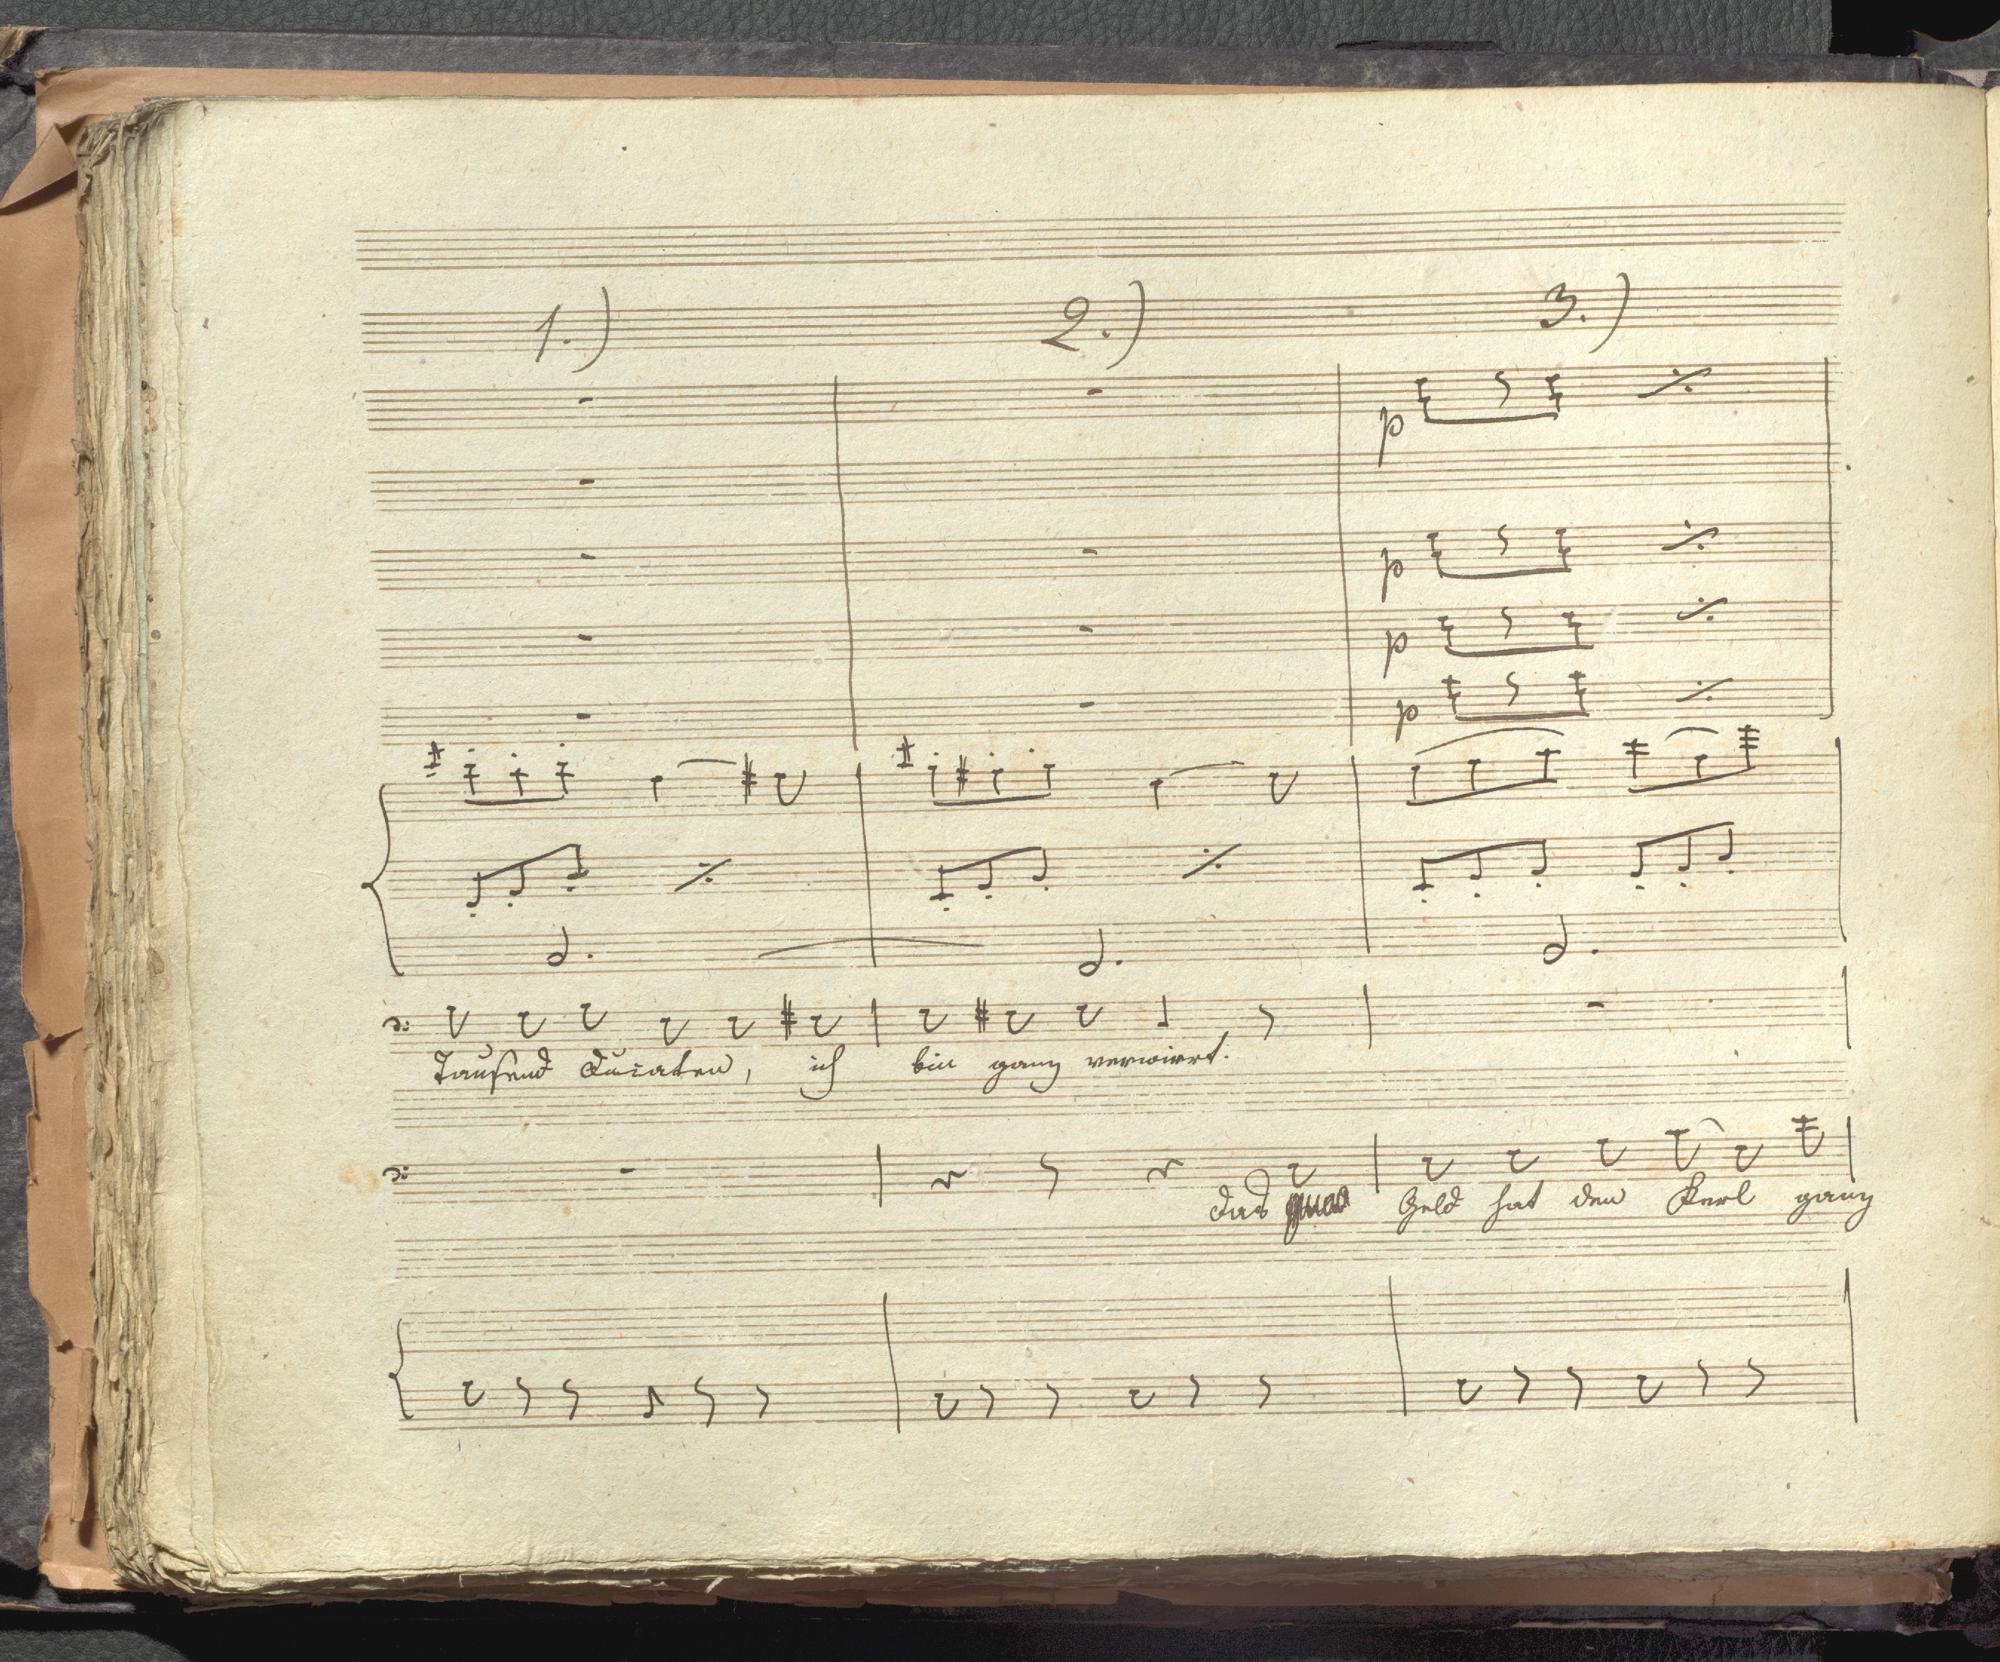 1.) 2.) 3.)
p
p
p
p
Tausend Ducaten, ich bin ganz verwirrt.
Das Geld hat den Kerl ganz